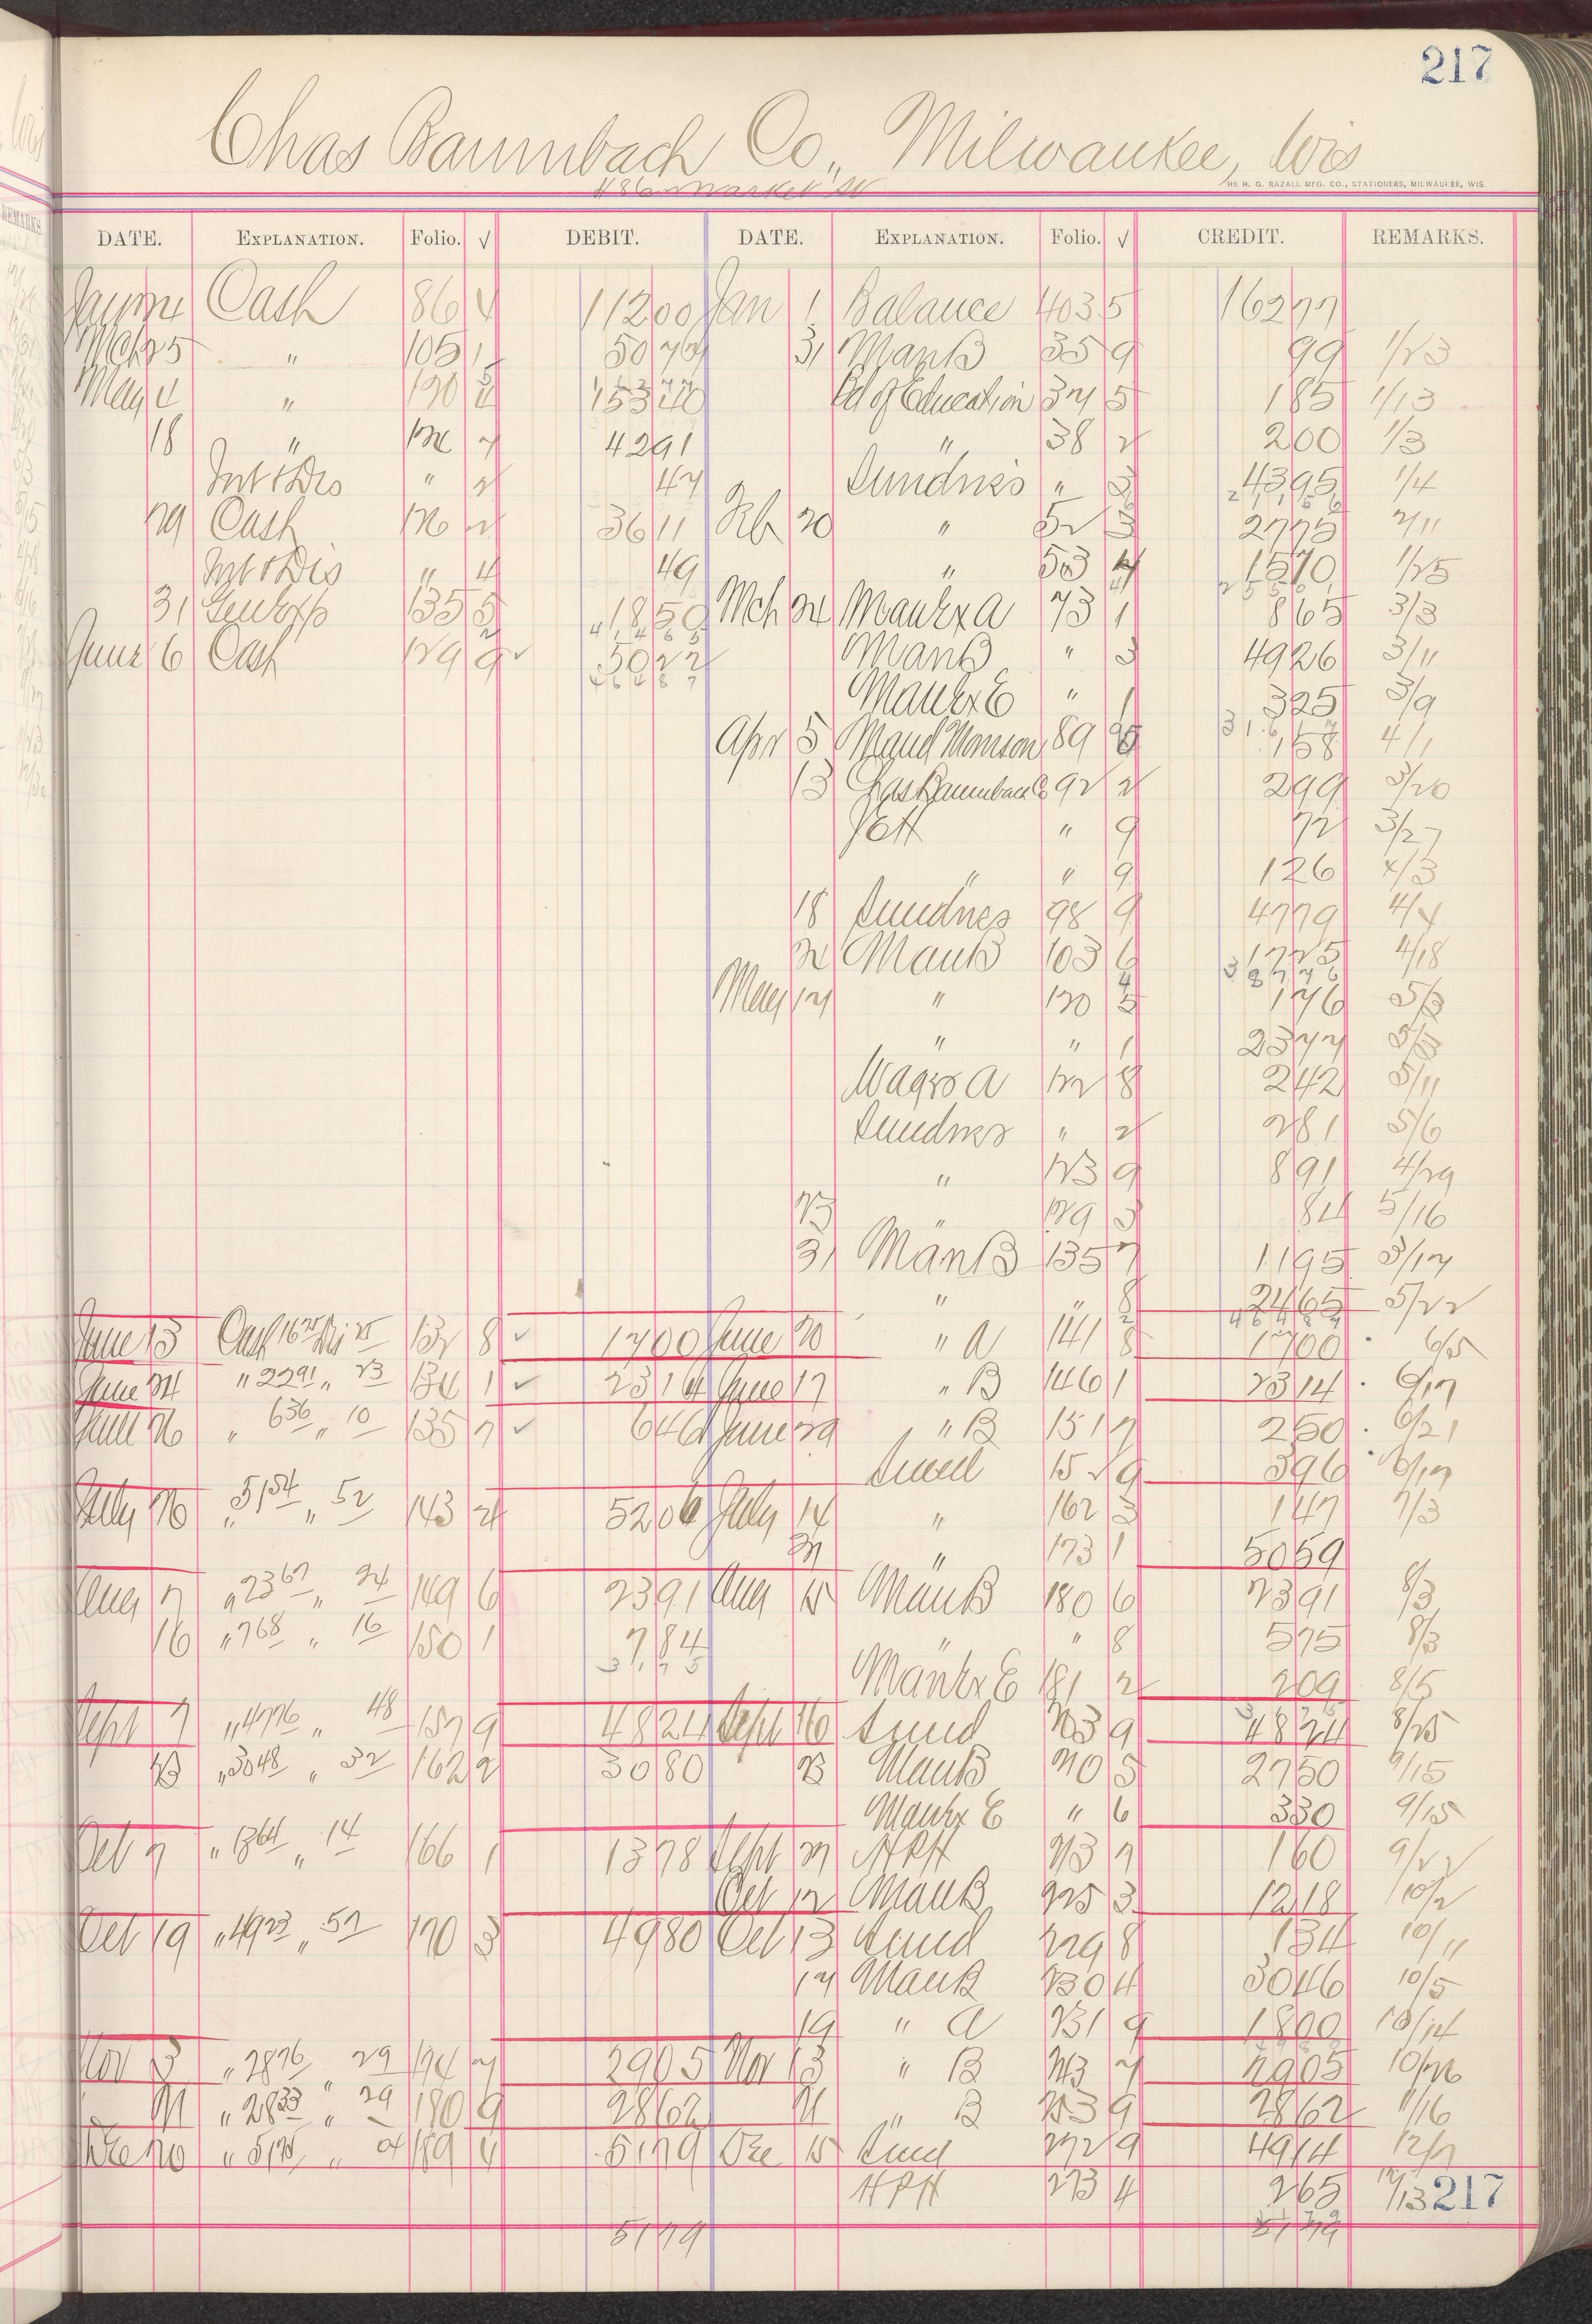 217
Chas Baumbach Co., Milwaukee, Wis
486 Market St
THE H. G. RAZALL MFG. CO., STATIONERS, MILWAUKEE, WIS.
DATE. EXPLANATION. Folio. √ DEBIT. DATE. EXPLANATION. Folio. √ CREDIT. REMARKS.
Cash 86 4 11200 Jan 1 Balance 403 5 16277
Mch 25 " 105 1 5074 31 Man B 35 9 99 1/23
May 4 " Bd of Education 37 5 185 1/13
18 " 4291 " 38 2 200 1/3
Int & Dis " 2 47 Sundries " 3 4395 1/4
29 Cash 126 2 3611 Feb 20 " 52 3 2775 2/11
Int & Dis " 4 49 " 53 4 1570 1/25
31 135 5 1850 Mch 24 Man Ex A 73 1 865 3/3
June 6 Cash 129 9 5022 Man B " 3 4926 3/11
Man Ex E " 1 325 3/9
Apr 5 Maud Monson 89 158 4/1
13 Chas Baumbach Co 92 2 299 3/20
" 9 72 3/27
" " 9 126 4/3
18 Sundries 98 9 4779 4/4
22 Man B 103 6 1725 4/18
May 17 " 120 5 176 5/3
" " 1 2377 5/3
Wagso A 122 8 242 5/11
Sundries " 2 281 5/6
" 123 9 891 4/29
23 " 129 3 84 5/16
31 Man B 135 7 1195 3/17
" " 8 2465 5/22
June 13 Cash 16 75 Dis 25 132 8 1700 June 20 " A 141 8 1700 6/5
June 24 " 22 91 " 23 134 1 2314 June 17 " B 146 1 2314 6/17
June 26 " 6 36 " 10 135 7 646 June 29 " B 151 7 250 6/21
Sund 152 9 396 6/17
July 26 " 51 54 " 52 143 2 5206 July 14 " 162 3 147 7/3
31 " 173 1 5059
Aug 7 " 23 67 " 24 149 6 2391 Aug 15 Man B 180 6 2391 8/3
16 " 7 68 " 16 150 1 784 " " 8 575 8/3
Man Ex E 181 2 209 8/5
Sept 7 " 47 76 " 48 157 9 4824 Sept 16 Sund 203 9 4824 8/25
23 " 30 48 " 32 162 2 3080 23 Man B 210 5 2750 9/15
Man Ex E " 6 330 9/15
Oct 7 " 13 64 " 14 166 1 1378 Sept 27 HPH 213 7 160 9/22
Oct 12 Man B 225 3 1218 10/2
Oct 19 " 49 23 " 57 170 3 4980 Oct 13 Sund 229 8 134 10/11
17 Man B 230 4 3046 10/5
19 " A 231 9 1800 10/14
Nov 13 " 28 76 " 29 174 7 2905 Nov 13 " B 243 7 2905 10/26
21 " 28 33 " 29 180 9 2862 21 " B 253 9 2862 11/16
Dec 20 " 51 75 " 04 189 4 5179 Dec 15 Sund 272 9 4914 12/7
HPH 273 4 265 12/13
217
5179 5179